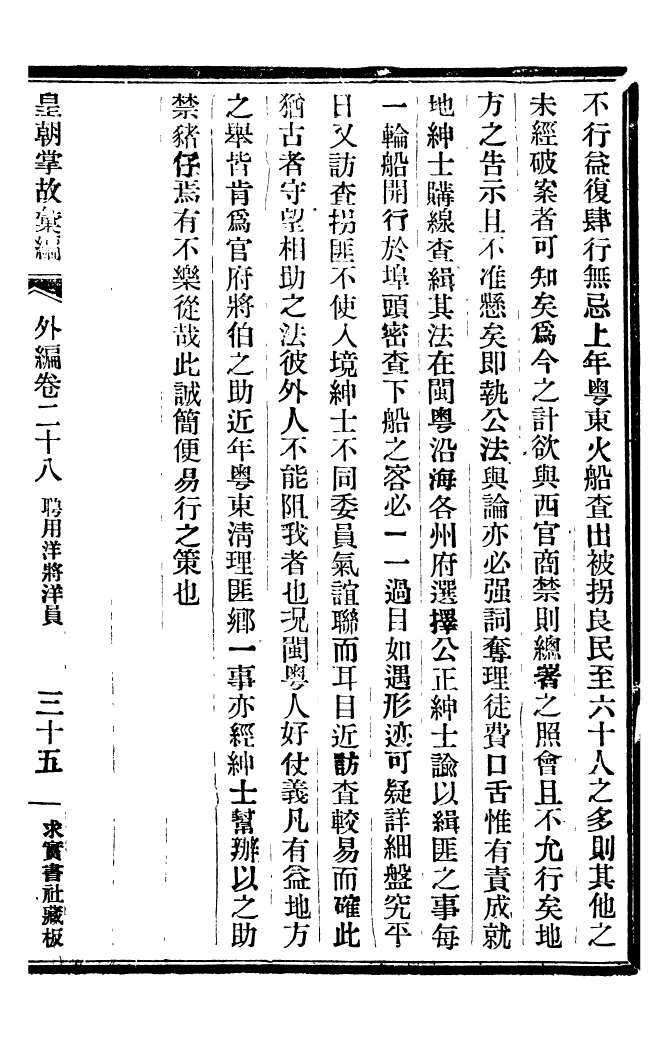 不行益復肆行無忌上年粵東火船查出被拐良民至六十人之多則其他之
未經破案者可知矣爲今之計欲與西官商禁則總署之照會且不允行矣地
方之告示且不准懸矣即執公法與論亦必强詞奪理徒費口舌惟有責成就
地紳士購線查緝其法在閩粵沿海各州府選擇公正紳士諭以緝匪之事每
一輪船開行於埠頭密查下船之客必一一過目如遇形迹可疑詳細盤究平
日又訪查拐匪不使入境紳士不同委員氣誼聯而耳目近訪查較易而確此
猶古者守望相助之法彼外人不能阻我者也况閩粵人好仗義凡有益地方
之舉皆肯爲官府將伯之助近年粵東清理匪鄉一事亦經紳士幫辦以之助
禁豬仔焉有不樂從哉此誠簡便易行之策也
皇朝掌故彙編 外編卷二十八 聘用洋將洋員 三十五 求實書社藏板